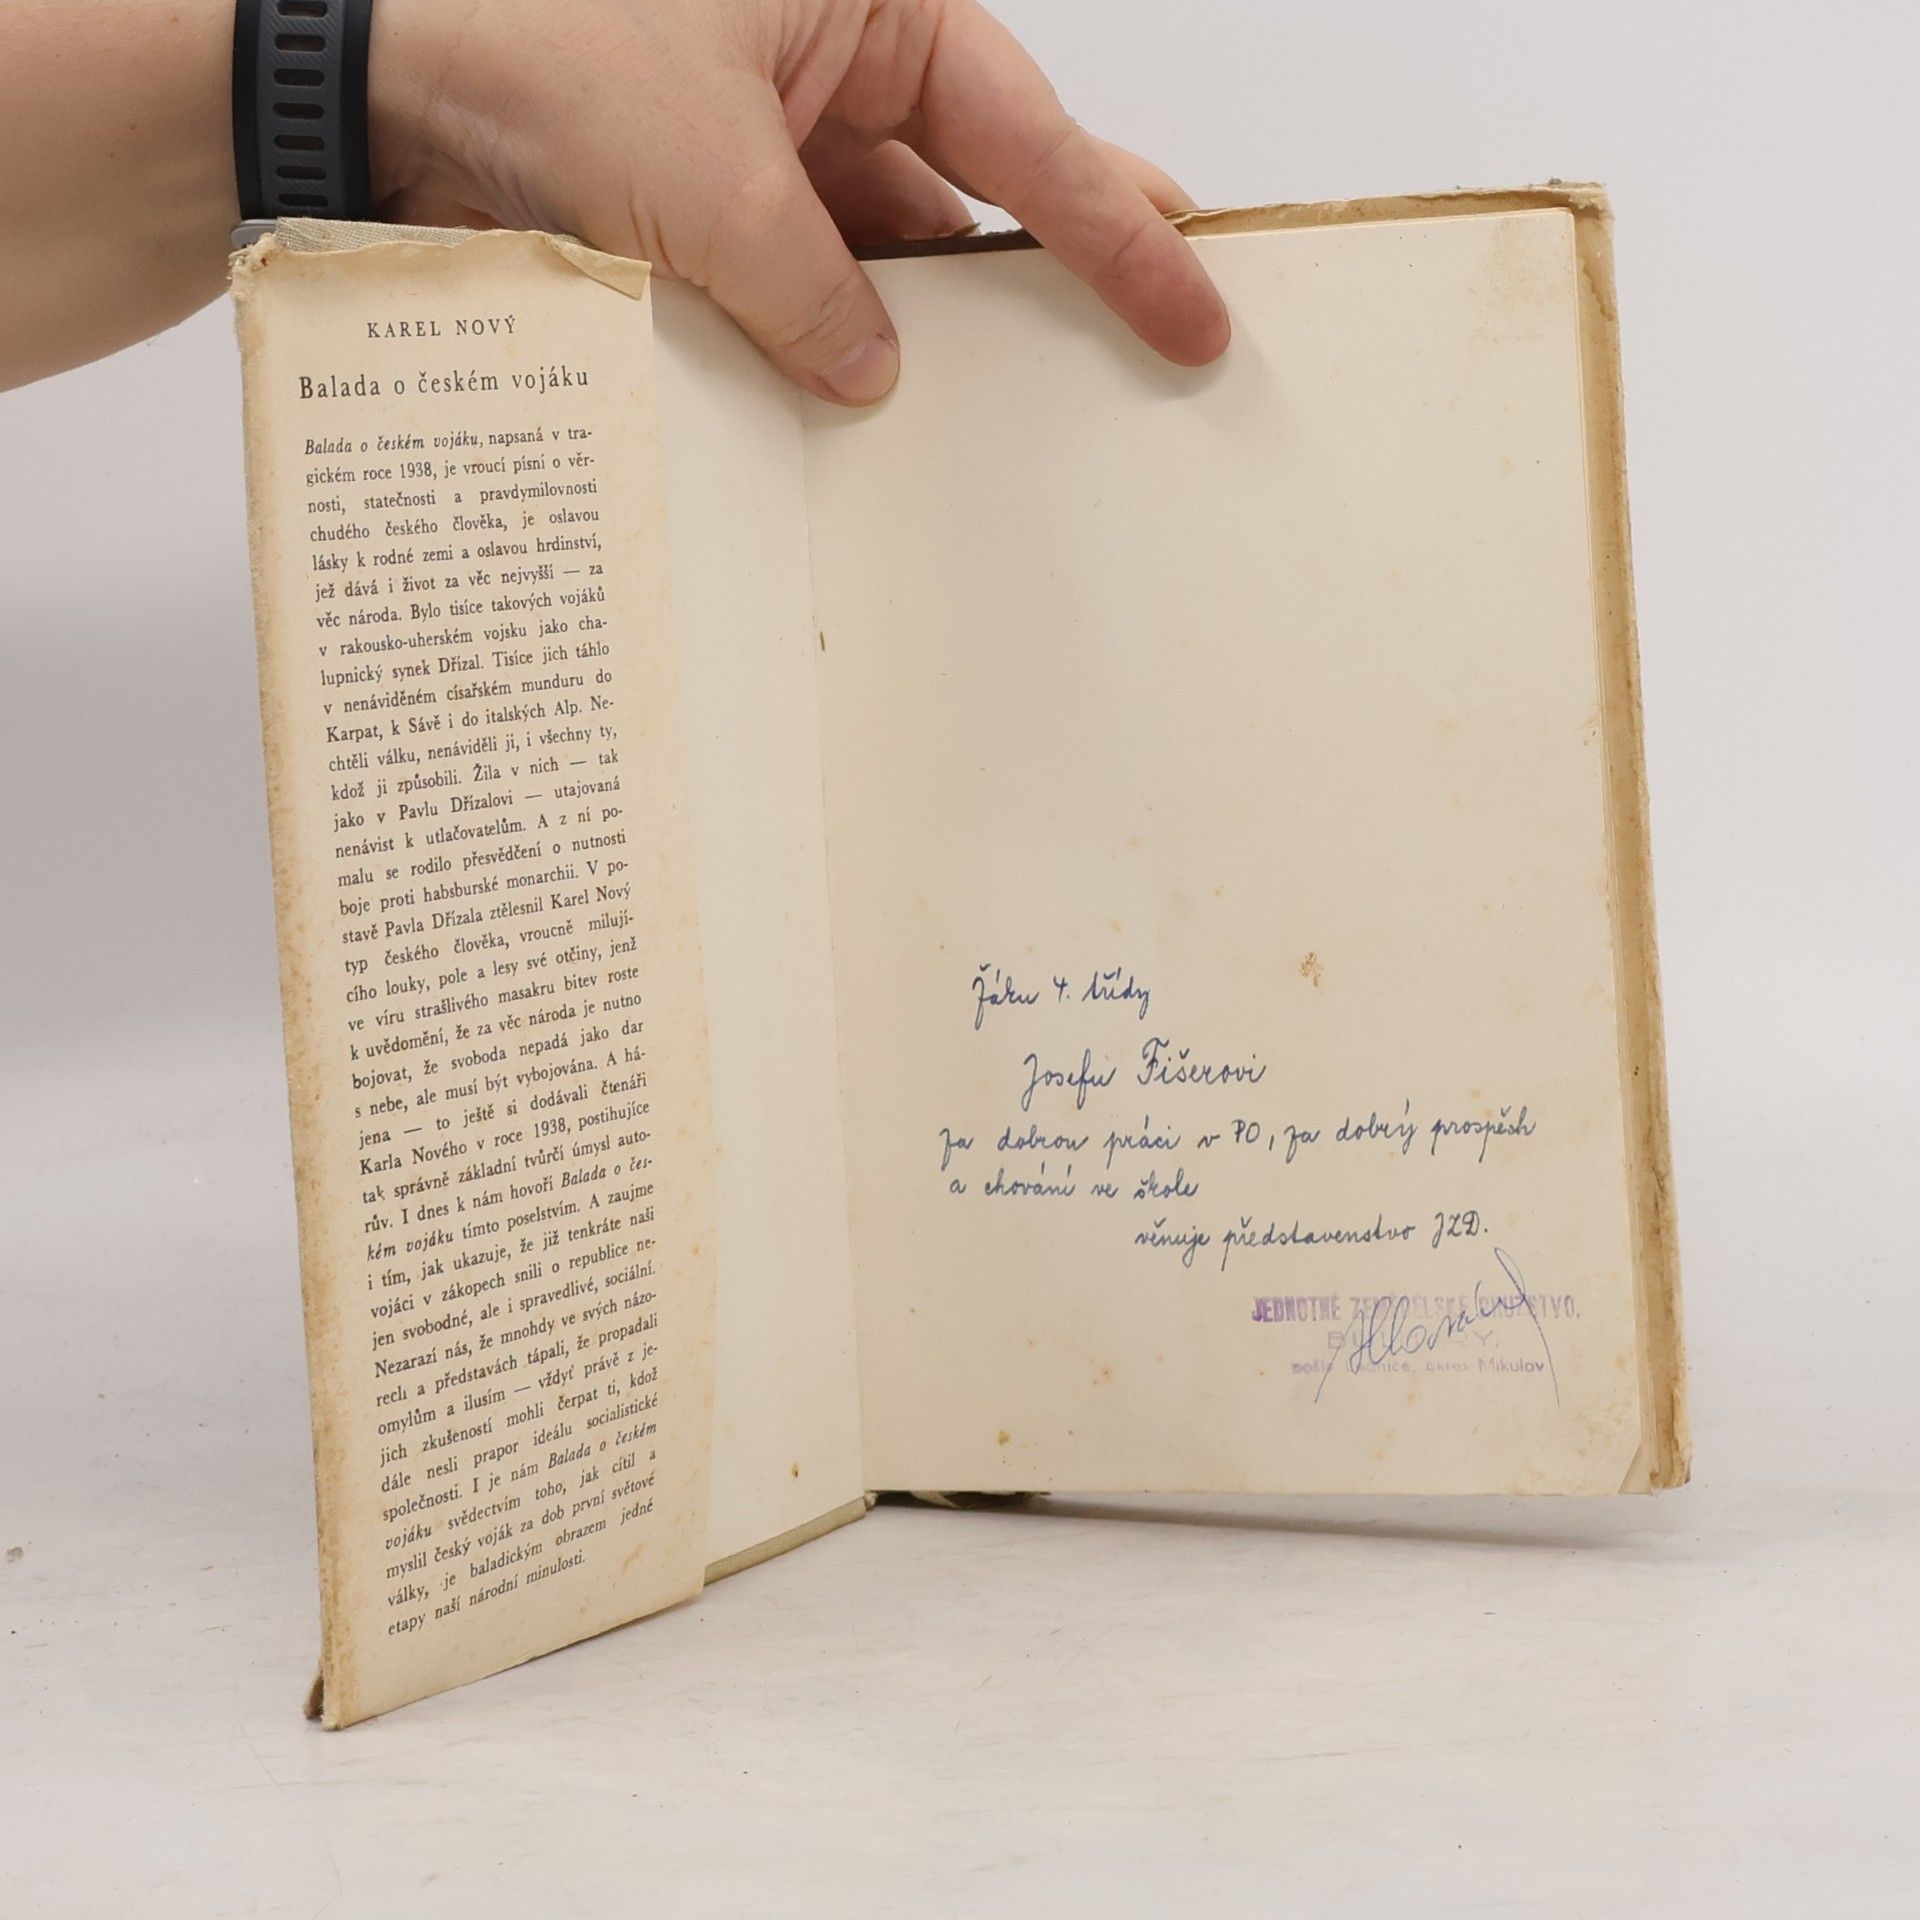 KAREL NOVÝ
Balada o českém vojáku
Balada o českém vojáku, napsaná v tra-
gickém roce 1938, je vroucí písní o věr-
nosti, statečnosti a pravdymilovnosti
chudého českého člověka, je oslavou
lásky k rodné zemi a oslavou hrdinství,
jež dává i život za věc nejvyšší — za
věc národa. Bylo tisíce takových vojáků
v rakousko-uherském vojsku jako cha-
lupnický synek Dřízal. Tisíce jich táhlo
v nenáviděném císařském munduru do
Karpat, k Sávě i do italských Alp. Ne-
chtěli válku, nenáviděli ji, i všechny ty,
kdož ji způsobili. Žila v nich — tak
jako v Pavlu Dřízalovi — utajovaná
nenávist k utlačovatelům. A z ní po-
malu se rodilo přesvědčení o nutnosti
boje proti habsburské monarchii. V po-
stavě Pavla Dřízala ztělesnil Karel Nový
typ českého člověka, vroucně milují-
cího louky, pole a lesy své otčiny, jenž
ve víru strašlivého masakru bitev roste
k uvědomění, že za věc národa je nutno
bojovat, že svoboda nepadá jako dar
s nebe, ale musí být vybojována. A há-
jena — to ještě si dodávali čtenáři
Karla Nového v roce 1938, postihujíce
tak správně základní tvůrčí úmysl auto-
rův. I dnes k nám hovoří Balada o čes-
kém vojáku tímto poselstvím. A zaujme
i tím, jak ukazuje, že již tenkráte naši
vojáci v zákopech snili o republice ne-
jen svobodné, ale i spravedlivé, sociální.
Nezarazí nás, že mnohdy ve svých názo-
rech a představách tápali, že propadali
omylům a ilusím — vždyť právě z je-
jich zkušeností mohli čerpat ti, kdož
dále nesli prapor ideálu socialistické
společnosti. I je nám Balada o českém
vojáku svědectvím toho, jak cítil a
myslil český voják za dob první světové
války, je baladickým obrazem jedné
etapy naší národní minulosti.
Žáku 4. třídy
Josefu Fišerovi
za dobrou práci v PO, za dobrý prospěch
a chování ve škole
věnuje představenstvo JZD.
JEDNOTNÉ ZEMĚDĚLSKÉ DRUŽSTVO,
pošta Lednice, okres Mikulov